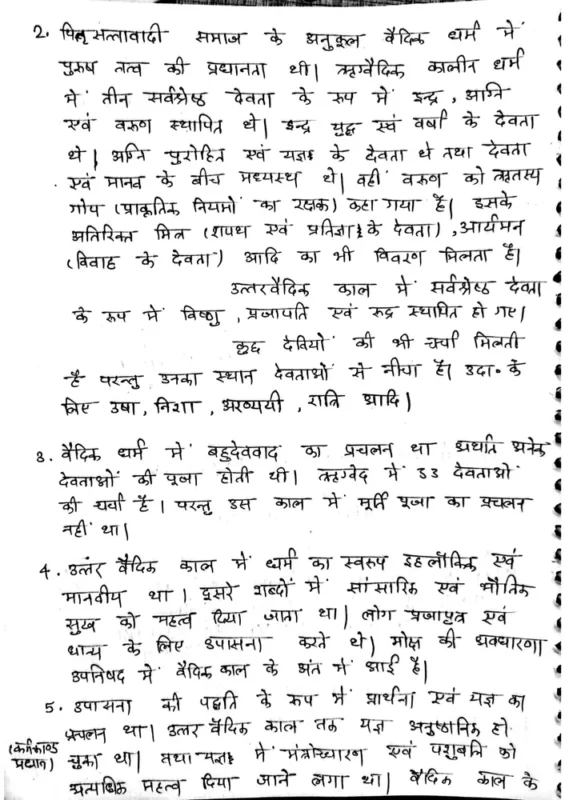 2. पितृसत्तावादी समाज के अनुकूल वैदिक धर्म में
पुरुष तत्व की प्रधानता थी। ऋग्वैदिक कालीन धर्म
में तीन सर्वश्रेष्ठ देवता के रूप में इन्द्र, अग्नि
एवं वरुण स्थापित थे। इन्द्र युद्ध एवं वर्षा के देवता
थे। अग्नि पुरोहित एवं यज्ञ के देवता थे तथा देवता
एवं मानव के बीच मध्यस्थ थे। वहीं वरुण को ऋतस्य
गोप (प्राकृतिक नियमों का रक्षक) कहा गया है। इसके
अतिरिक्त मित्र (शपथ एवं प्रतिज्ञा के देवता), आर्यमन
(विवाह के देवता) आदि का भी विवरण मिलता है।
उत्तरवैदिक काल में सर्वश्रेष्ठ देवता
के रूप में विष्णु, प्रजापति एवं रुद्र स्थापित हो गए।
कुछ देवियों की भी चर्चा मिलती
है परन्तु उनका स्थान देवताओं से नीचा है। उदा० के
लिए उषा, निशा, अरण्यी, रात्रि आदि।
3. वैदिक धर्म में बहुदेववाद का प्रचलन था अर्थात अनेक
देवताओं की पूजा होती थी। ऋग्वेद में 33 देवताओं
की चर्चा है। परन्तु उस काल में मूर्ति पूजा का प्रचलन
नहीं था।
4. उत्तर वैदिक काल में धर्म का स्वरुप इहलौकिक एवं
मानवीय था। दूसरे शब्दों में सांसारिक एवं भौतिक
सुख को महत्व दिया जाता था। लोग प्रजा,पुत्र एवं
धान्य के लिए उपासना करते थे। मोक्ष की अवधारणा
उपनिषद में वैदिक काल के अंत में आई है।
5. उपासना की पद्धति के रूप में प्रार्थना एवं यज्ञ का
प्रचलन था। उत्तर वैदिक काल तक यज्ञ अनुष्ठानिक हो
(कर्मकाण्ड प्रधान) चुका था। तथा यज्ञ में मंत्रोच्चारण एवं पशुबलि को
अत्यधिक महत्व दिया जाने लगा था। वैदिक काल के